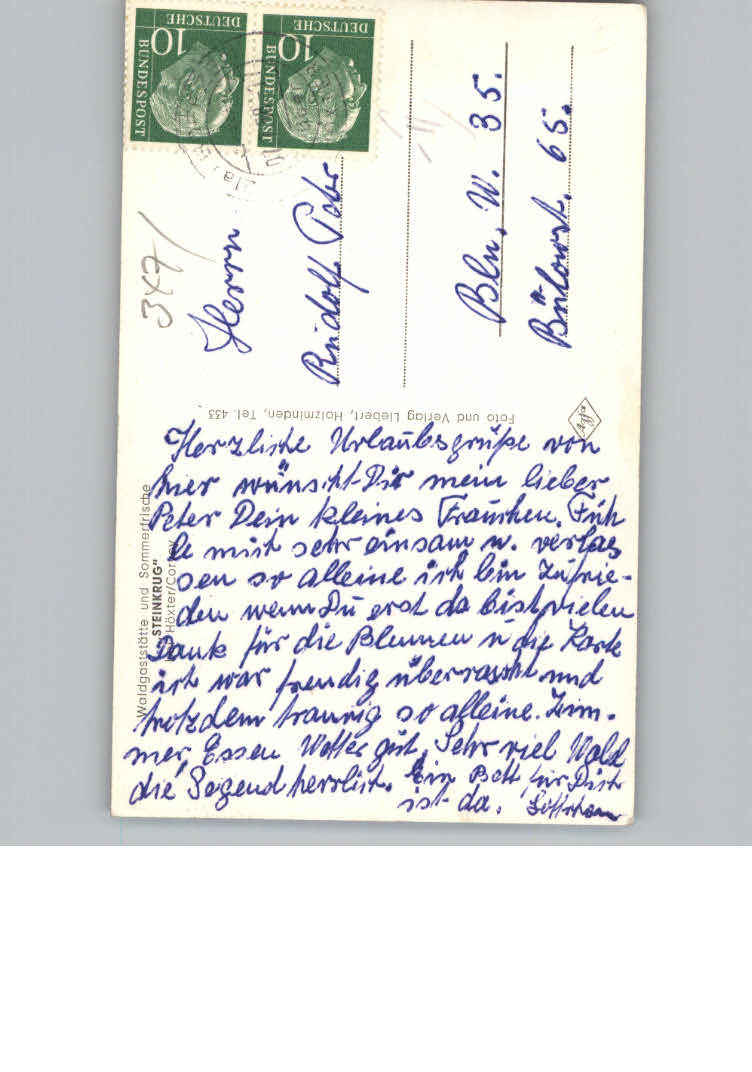 DEUTSCHE
BUNDESPOST
10
DEUTSCHE
BUNDESPOST
10
347/
Herrn
Rudolf
Bln. W. 35.
Bülowst. 65.
Foto und Verlag Liebert, Holzminden, Tel. 433
Agfa
Waldgaststätte und Sommerfrische
„STEINKRUG"
Höxter/Corvey
Herzliche Urlaubsgrüße von
hier wünscht Dir mein lieber
Peter Dein kleines Frauchen. Füh
le mich sehr einsam u. verlas
sen so alleine ich bin zufrie-
den wenn Du erst da bist vielen
Dank für die Blumen u die Karte
ich war freudig überrascht und
trotzdem traurig so alleine. Zim-
mer, Essen Wetter gut, Sehr viel Wald
die Gegend herrlich. Ein Bett für Dich
ist da.